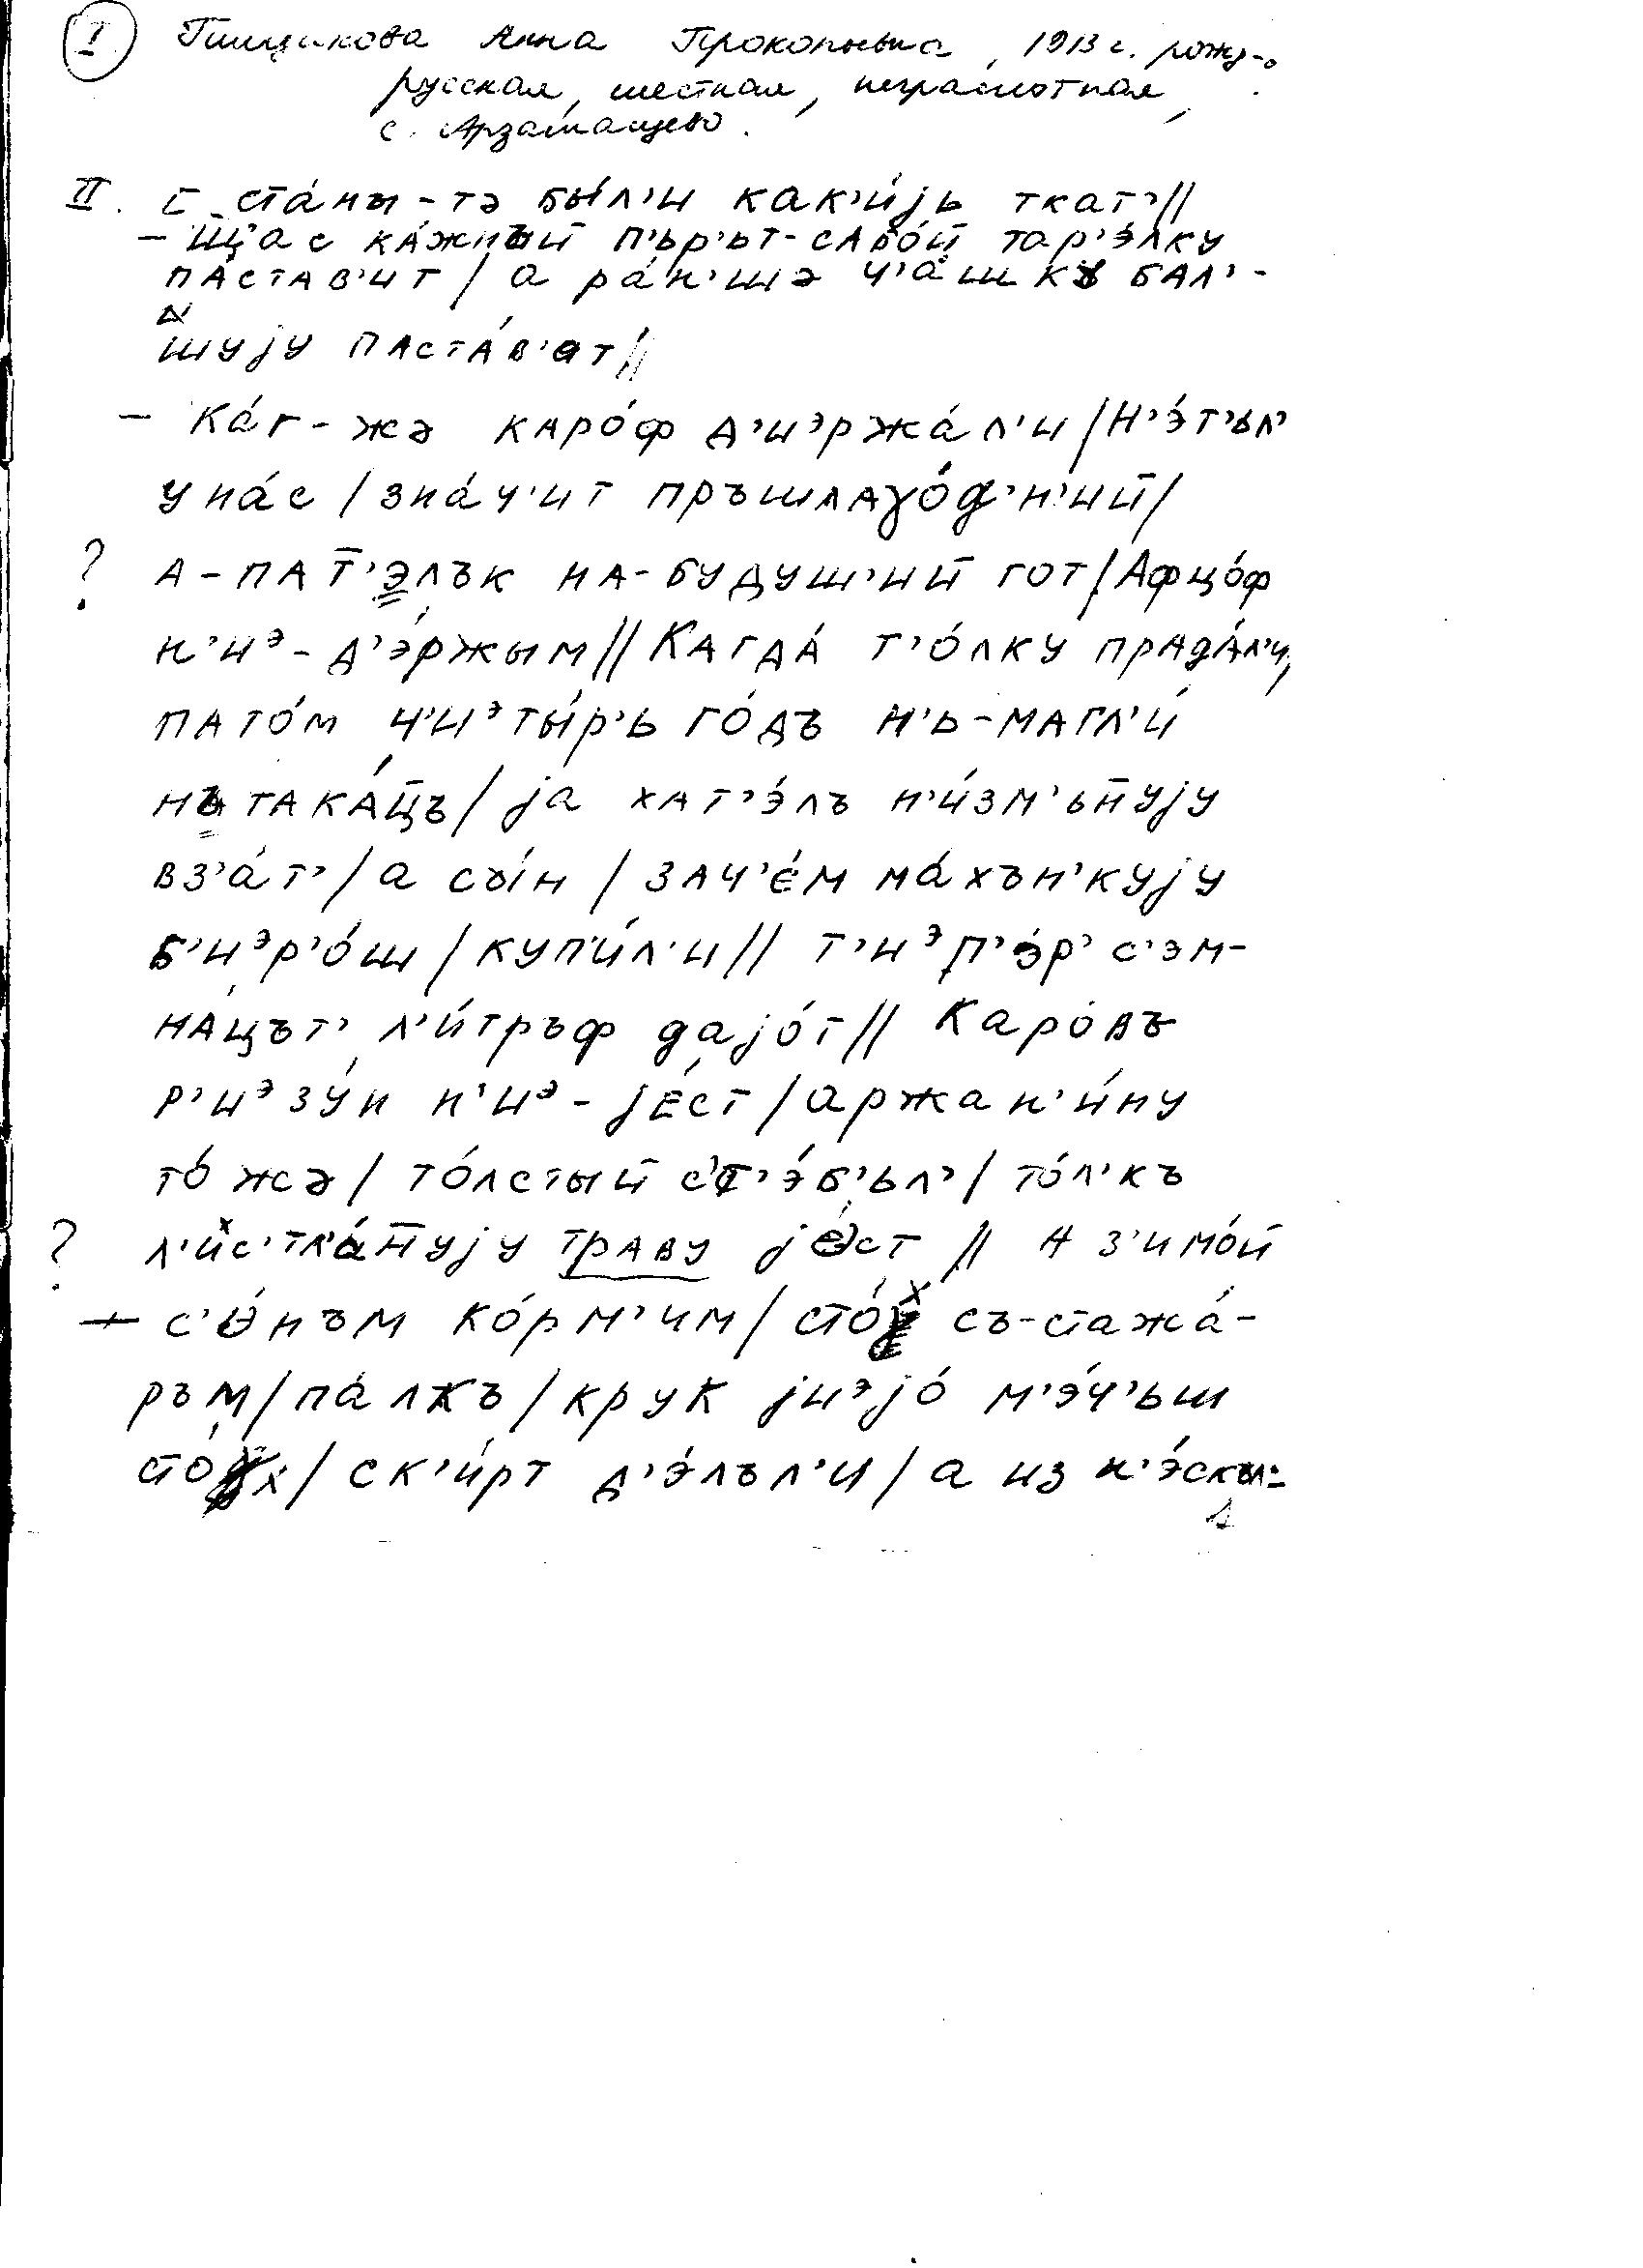 I Анна Прокопьевна, 1913 г. рожд-я
русская, местная, неграмотная,
с.
II. – ста́ны-тә бы́л'и как'и́jь ткат'//
– щ̄ас кАжный п'ър'ьт-сАбо́й тар'э́лку
пАста́в'ит / а ра́н'шә ч'а́шку бАл'-
шуjу пАстА́в'ат//
– Ка́г-жә кАро́ф д'иэржа́л'и /Н'э́т'ьл'
у на́с / зна́ч'ит пръшлАγо́д'н'ий/
? А-пАт̄'элък нА-будуш'ий гот/Афцо́ф
н'иэ-д'э́ржым// КАгдА́ т'о́лку прАдА́л'и,
пАто́м ч'иэты́р'ь го́дъ н'ь-мАгл'и́
нътАка́ц̄ъ/ jа хАт'э́лъ н'и́зм'ьн̄уjу
вз'а́т'/ а сы́н / зАч'е́м ма́хън'куjу
б'иэр'о́ш / куп'и́л'и// т'иэп'э́р' с'эм-
нА́цът' л'и́тръф даjо́т// Каро́въ
р'иэзу́н н'иэ-jе́ст /аржан'и́ну
то́жә/ то́лстый с'т'э́б'ьл'/ то́л'къ
? л'ис'тв'а́н̄уjу траву jе́ст // А з'имо́й
– с'э́нъм ко́рм'им/ сто́х съ-стажа́-
ръм/па́лкъ/ крук jиэjо́ м'э́ч'ьш
сто́х/ ск'и́рт д'э́лъл'и/ а из н'э́скъл=